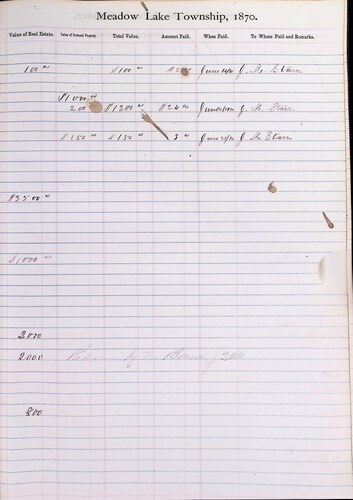 Meadow Lake Township, 1870.
Value of Real Estate. Value of Personal Property. Total Value. Amount Paid. When Paid. To Whom Paid and Remarks.
100 00 $100 00 June 14/70 J. H. Starr
$1000 00
200 $1200 00 $24 00 June J. H. Starr
$150 $150 00 3 00 June J. H. Starr
$3500 00
$1000 00
2000
2000 Reduced by the Board of
800